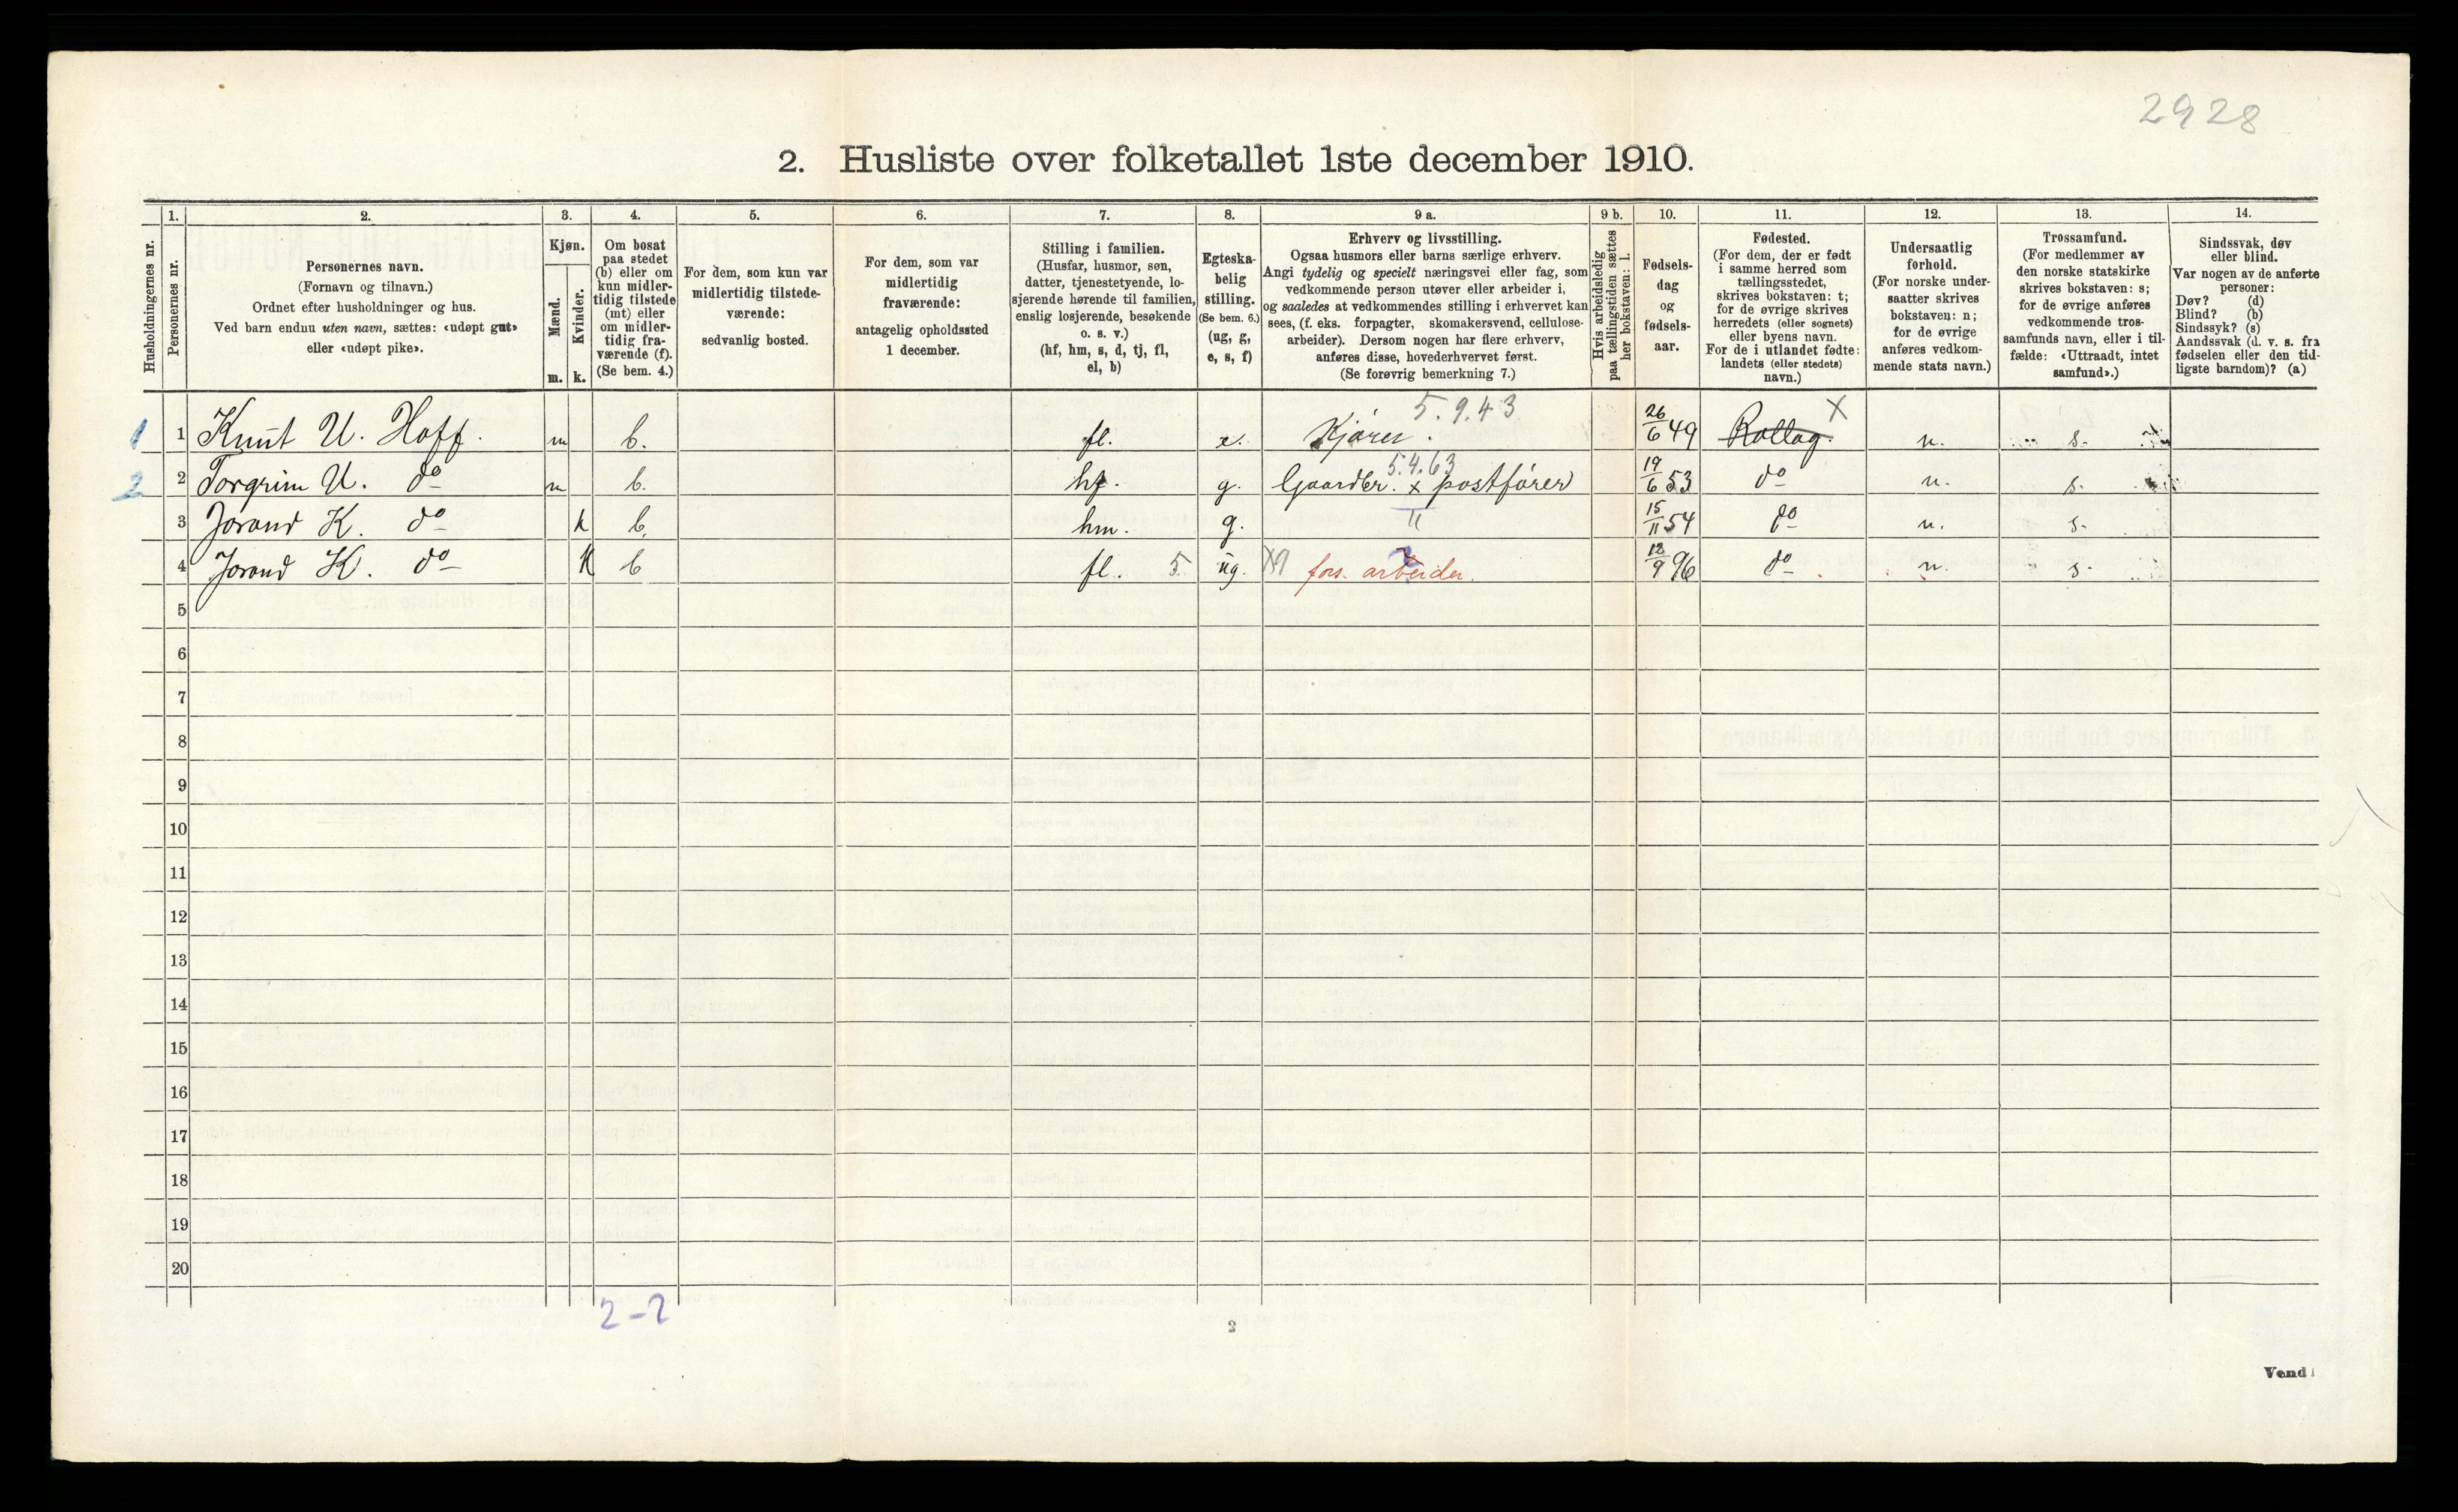 2928
2. Husliste over folketallet 1ste december 1910.
Husholdningernes nr.
1.
Personernes nr.
2.
Personernes navn.
(Fornavn og tilnavn.)
Ordnet efter husholdninger og hus.
Ved barn endnu uten navn, sættes: «udøpt gut»
eller «udøpt pike».
3.
Kjøn.
Mænd.
m.
Kvinder.
k.
4.
Om bosat
paa stedet
(b) eller om
kun midler-
tidig tilstede
(mt) eller
om midler-
tidig fra-
værende (f).
(Se bem. 4.)
5.
For dem, som kun var
midlertidig tilstede-
værende:
sedvanlig bosted.
6.
For dem, som var
midlertidig
fraværende:
antagelig opholdssted
1 december.
7.
Stilling i familien.
(Husfar, husmor, søn,
datter, tjenestetyende, lo-
sjerende hørende til familien,
enslig losjerende, besøkende
o. s. v.)
(hf, hm, s, d, tj, fl,
el, b)
8.
Egteska-
belig
stilling.
(Se bem. 6.)
(ug, g,
e, s, f)
9 a.
Erhverv og livsstilling.
Ogsaa husmors eller barns særlige erhverv.
Angi tydelig og specielt næringsvei eller fag, som
vedkommende person utøver eller arbeider i,
og saaledes at vedkommendes stilling i erhvervet kan
sees, (f. eks. forpagter, skomakersvend, cellulose-
arbeider). Dersom nogen har flere erhverv,
anføres disse, hovederhvervet først.
(Se forøvrig bemerkning 7.)
9 b.
Hvis arbeidsledig
paa tællingstiden sættes
her bokstaven: l.
10.
Fødsels-
dag
og
fødsels-
aar.
11.
Fødested.
(For dem, der er født
i samme herred som
tællingsstedet,
skrives bokstaven: t;
for de øvrige skrives
herredets (eller sognets)
eller byens navn.
For de i utlandet fødte:
landets (eller stedets)
navn.)
12.
Undersaatlig
forhold.
(For norske under-
saatter skrives
bokstaven: n;
for de øvrige
anføres vedkom-
mende stats navn.)
13.
Trossamfund.
(For medlemmer av
den norske statskirke
skrives bokstaven: s;
for de øvrige anføres
vedkommende tros-
samfunds navn, eller i til-
fælde: «Uttraadt, intet
samfund».)
14.
Sindssvak, døv
eller blind.
Var nogen av de anførte
personer:
Døv? (d)
Blind? (b)
Sindssyk? (s)
Aandssvak (d. v. s. fra
fødselen eller den tid-
ligste barndom)? (a)
5.9.43 X
1 1 Knut U. Hoff. m b. fl. e. Kjører. 26/6 49 Rollag. n. s.
5.4.63
2 2 Torgrim U. do m b. hf. g. Gaardbr. x postfører 19/6 53 do n. s.
3 Jorand K. do k b. hm. g. " 15/11 54 do n. s.
4 Jorand K. do k b fl. 5 ug. fors. arbeider. 12/9 96 do n. s.
5
6
7
8
9
10
11
12
13
14
15
16
17
18
19
20
2-2
2
Vend!